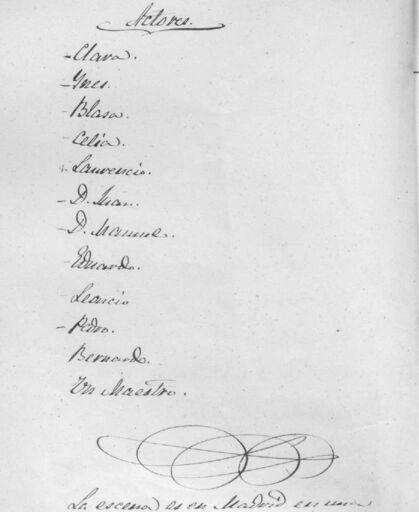 Actores.
- Clara.
- Ynes.
- Blasa.
- Celia.
- Laurencio.
- D. Juan.
- D. Manuel.
Eduardo.
Leoncio
- Pedro.
Bernardo.
Un Maestro.
La escena es en Madrid en una